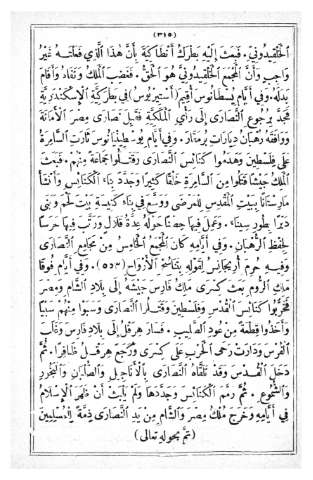 (٣١٥)
الخلقيدوني. فبعث اليه بطرك انطاكية بأن هذا الذي فعلته غير
واجب وأن المجمع الخلقيدوني هو الحق. فغضب الملك ونفاه وأقام
بدله. وفي أيام يسطانوس أقيم (أستيريوس) في بطركية الإسكندرية
مجدد برجوع النصارى إلى رأي الملكية فقبل نصارى مصر الأمانة
ووافقه رهبان ديارات بومقار. وفي أيام يوسطينانوس ثارت السامرة
على فلسطين وهدموا كنائس النصارى وقتلوا جماعة منهم. فبعث
الملك جيشا قتلوا من السامرة خلقا كثيرا وجدد بناء الكنائس وأنشأ
مارستانا ببيت المقدس للمرضى ووسع في بناء كنيسة بيت لحم وبنى
ديرا بطور سيناء. وعمل فيها حصنا حوله عدة قلالي ورتب فيها حرسا
لحفظ الرهبان. وفي أيامه كان المجمع الخامس من مجامع النصارى
وفيه حرم أريجانس لقوله بتناسخ الأرواح (٥٥٣). وفي أيام فوقا
ملك الروم بعث كسرى ملك فارس جيشه إلى بلاد الشام ومصر
فخربوا كنائس القدس وفلسطين وقتلوا النصارى وسبوا منهم سبيا
وأخذوا قطعة من عود الصليب. فسار هرقل إلى بلاد فارس وقاتل
الفرس ودارت رحى الحرب على كسرى ورجع هرقل ظافرا. ثم
دخل القدس وقد تلقاه النصارى بالأناجيل والصلبان والبخور
والشموع. ثم رمم الكنائس وجددها ولم يلبث أن ظهر الإسلام
في أيامه وخرج ملك مصر والشام من يد النصارى ذمة للمسلمين
(تم بحوله تعالى)